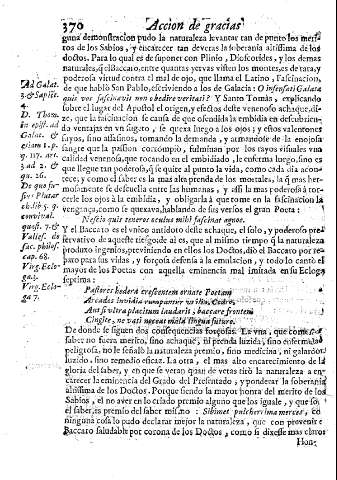 370 Accion de gracias
guna demonstracion pudo la naturaleza levantar tan de punto los meri-
tos de los Sabios, y encarecer tan deveras la soberania altissima de los
doctos. Para lo qual es de suponer con Plinio, Dioscorides, y los demas
naturales, q el Baccaro, entre quantas yervas visten los montes, es de rara, y
poderosa virtud contra el mal de ojo, que llama el Latino, Fascinacion,
de que habló San Pablo, escriviendo a los de Galacia: O insensati Galatæ
quis vos fascinavit non obedire veritati? Y Santo Tomás, explicando
sobre el lugar del Apostol el origen, y efectos deste venenoso achaque, di-
ze, que la fascinacion se causa de que ofendida la embidia en descubrien-
do ventajas en un sugeto, se quexa luego a los ojos; y estos valentones
suyos, sino assasinos, tomando la demanda, y armandose de la enojosa
sangre que la passion corrompió, fulminan por los rayos visuales una
calidad venenosa, que tocando en el embidiado, le enferma luego, sino es
que llegue tan poderosa, q se quite al punto la vida, como cada dia acon-
tece; y como el saber es la mas alta prenda de los mortales, la q mas her-
mosamente se descuella entre las humanas, y assi la mas poderosa a tor-
cerle los ojos à la embidia, y obligarla à que tome en la fascinacion la
vengança, como se quexava, hablando de sus versos el gran Poeta:
Nescio quis teneros oculus mihi fascinat agnos.
Y el Baccaro es el unico antidoto deste achaque, el solo, y poderoso pre-
servativo de aqueste riesgo: de aì es, que al mismo tiempo q la naturaleza
produxo ingenios, previniendo en ellos los Doctos, diò el Baccaro por re-
paro para sus vidas, y forçosa defensa à la emulacion, y todo lo cantò el
mayor de los Poetas con aquella eminencia mal imitada en su Ecloga
septima:
Pastores hedera crescentem ornate Poetam
Arcades invidia rumpantur ut ilia Codro,
Aut si ultra placitum laudarit, baccare frontem
Cingite, ne vati noceat mala lingua futuro.
De donde se siguen dos consequencias forçosas. La una, que como el
saber no fuera merito, sino achaque, ni prenda luzida, sino enfermedad
peligrosa, no le señalò la naturaleza premio, sino medicina; ni galardon
luzido, sino remedio eficaz. La otra, el mas alto encarecimiento de la
gloria del saber, y en que se veràn quan de veras tirò la naturaleza a en-
carecer la eminencia del Grado del Presentado, y ponderar la soberania
altissima de los Doctos. Porque siendo la mayor honra del merito de los
Sabios, el no aver en lo criado premio alguno que los iguale, y que solo
el saber, es premio del saber mismo: Sibimet pulcherrima merces, con
ninguna cosa lo pudo declarar mejor la naturaleza, que con prevenir el
Baccaro saludable por corona de los Doctos, como si dixesse mas claro:
Hon-
Ad Galat.
3. & Suplic.
4.
D. Thom.
in epist. ad
Galat.
etiam 1. p.
q. 117. art.
3. ad 2. &
qu. 26.
De quo fu-
sius Plutar
ch. lib. 5. q.
convival.
quæst. 7. &
Valles. de
sac. philos.
cap. 68.
Virg. Eclo-
ga 3.
Virg. Eclo-
ga 7.